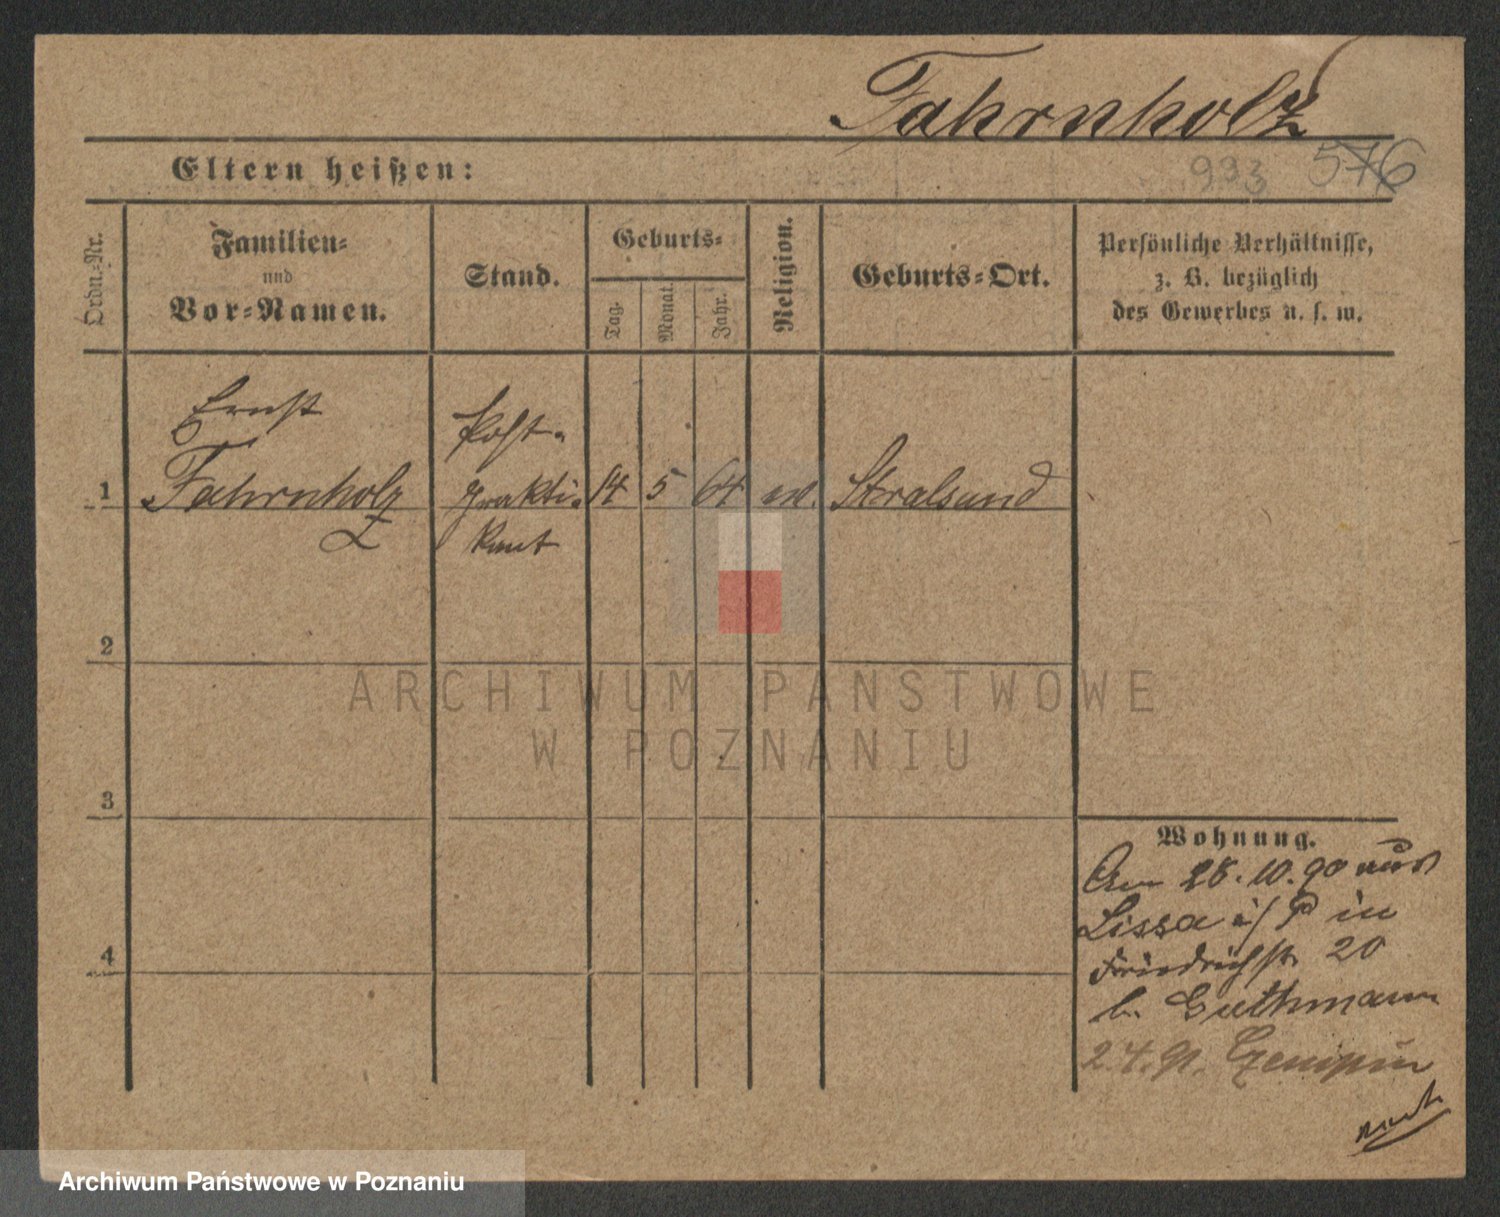 Fahrnholz
Eltern heißen:
993 576
Ordn.-Nr.
Familien-
und
Vor-Namen.
Stand.
Geburts-
Tag.
Monat.
Jahr.
Religion.
Geburts-Ort.
Persönliche Verhältnisse,
z. B. bezüglich
des Gewerbes u. s. w.
1
Ernst
Fahrnholz
Post-
prakti-
kant
14 5 64 ev. Stralsund
2
3
4
Wohnung.
Am 28.10.90 aus
Lissa i/P in
Friedrichstr 20
b. Guthmann
2.4.91. Czempin
ARCHIWUM PAŃSTWOWE
W POZNANIU
Archiwum Państwowe w Poznaniu